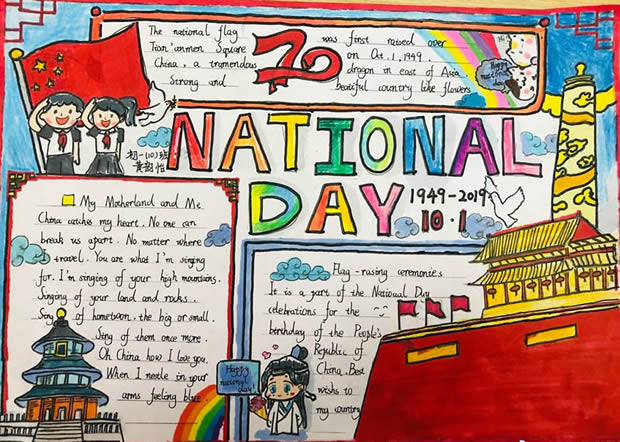 The national flag was first raised over
Tian'anmen Square on Oct. 1, 1949.
China, a tremendous dragon in east of Asia.
Strong and beatiful country like flowers
70
Happy
national
day
NATIONAL
DAY
1949-2019
10·1
初一(10)班
My Motherland and Me
China catches my heart. No one can
break us apart. No matter where
I travel. You are what I'm singing
for. I'm singing of your high mountains.
Singing of your land and rocks.
of hometown. the big or small.
Sing of them once more.
Oh China how I love you.
When I nestle in your
arms feeling blue.
Flag-rasing ceremonies
It is a part of the National Day
celebrations for the
birthday of the People's
Republic of
China. Best
wishes to
my country
Happy
national
day!